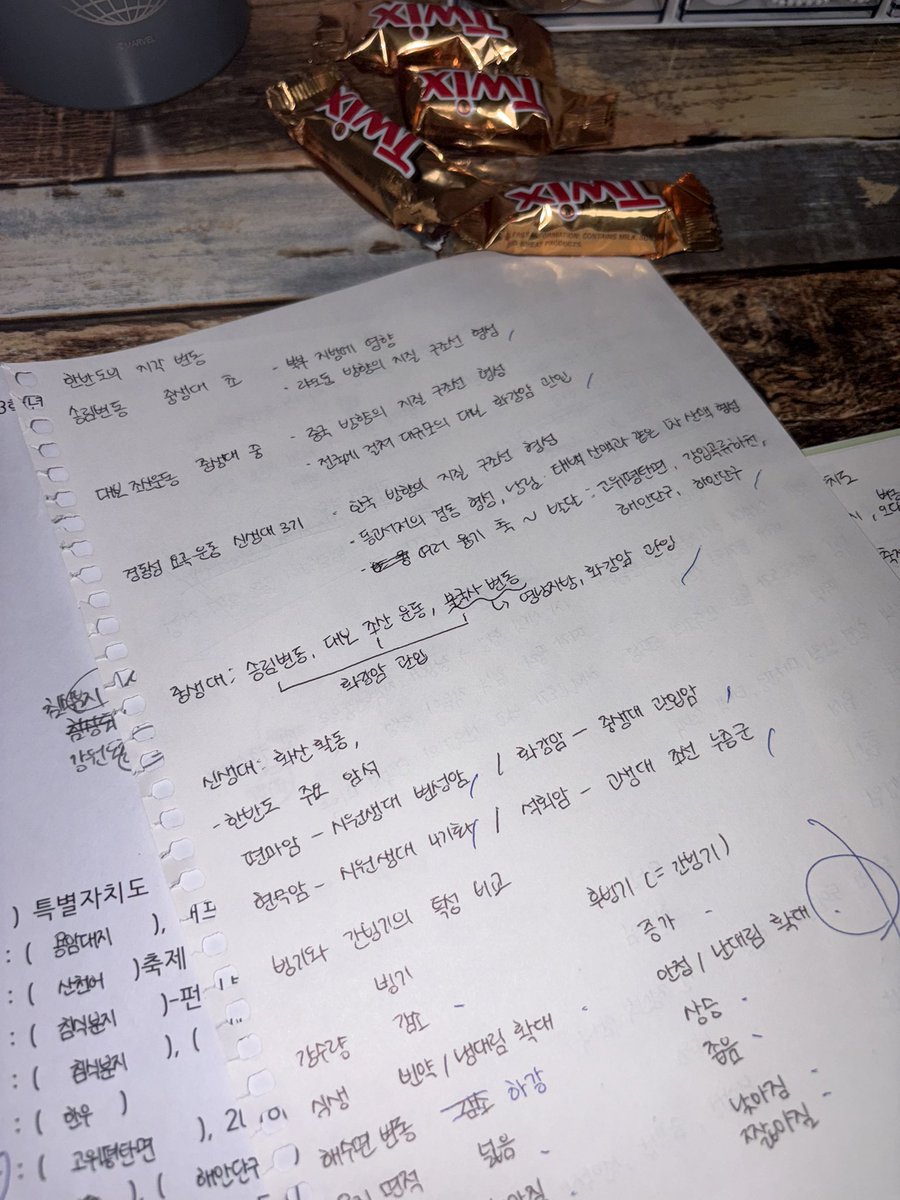 MARVEL
TWIX
TWIX
TWIX
TWIX
CONTAINS MILK,
WHEAT PRODUCTS.
한반도의 지각 변동
송림변동 중생대 초 - 북부 지방에 영향
- 랴오둥 방향의 지질 구조선 형성
대보 조산운동 중생대 중 - 중국 방향의 지질 구조선 형성
- 전회에 걸쳐 대규모의 대보 화강암 관입
경동성 요곡 운동 신생대 3기 - 한국 방향의 지질 구조선 형성
- 동고서저의 경동 형성, 낭림 태백 산맥과 같은 1차 산맥 형성
- 여러 융기 축 ~ 발달 : 고위평탄면, 감입곡류하천,
해안단구, 하안단구
중생대 : 송림변동, 대보 조산 운동, 불국사 변동
↳ 영남지방, 화강암 관입
화강암 관입
신생대 : 화산 활동,
- 한반도 주요 암석
편마암 - 시원생대 변성암 / 화강암 - 중생대 관입암
현무암 - 시원생대 / 석회암 - 고생대 조선 누층군
빙기와 간빙기의 특성 비교
빙기 후빙기 (= 간빙기)
강수량 감소 증가
식생 빈약 / 냉대림 확대 안정 / 난대림 확대
해수면 변동 하강 상승
면적 넓음 좁음
낮아짐
짧아짐
침식분지
강원도
) 특별자치도
: ( 용암대지 ),
: ( 산천어 )축제
: ( 침식분지 )-펀
: ( 침식분지 ), (
: ( 한우 )
: ( 고위평탄면 ),
), ( 해안단구 )